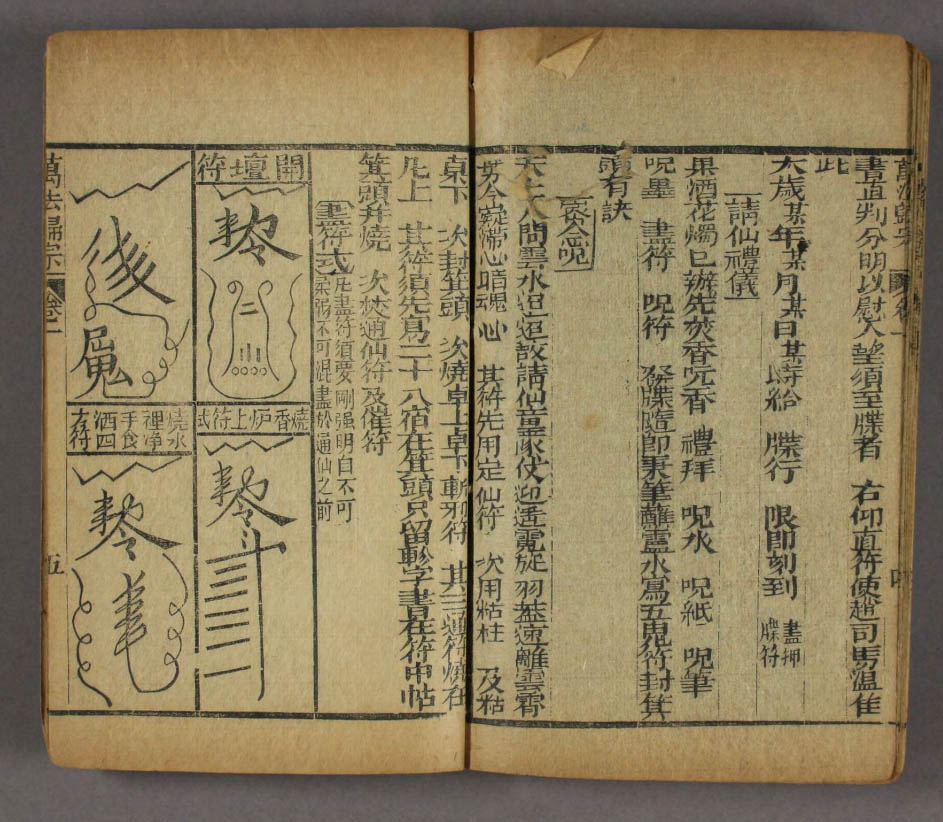 萬法歸宗 卷二
書直判分明以慰人望須至牒者 右仰直符使趙司馬溫隹
此
太歲某年某月某日某時給 牒行 限即刻到 畫押 牒符
請仙禮儀
果酒花燭已辦先焚香咒香 禮拜 咒水 咒紙 咒筆
咒墨 畫符 咒符 發牒隨即秉筆蘸靈水寫五鬼符封箕
頭有訣
天上人間雲水迢迢故請仙童隊仗迎逢霓旋羽蓋遠離雲霄
其符先用定仙符 次用粘柱 及粘
桌下 次封箕頭 次燒卓上卓下斬邪符 其三道符燒在
凡上 其符須先寫二十八宿在箕頭只留軫字書在符中帖
箕頭并燒 次焚通仙符及催符
畫符式 凡畫符須要剛强明白不可柔弱不可混畫於通仙之前
開壇符
燒香炉上符式
燒水裡淨手食酒四方符
萬法歸宗 卷二 五